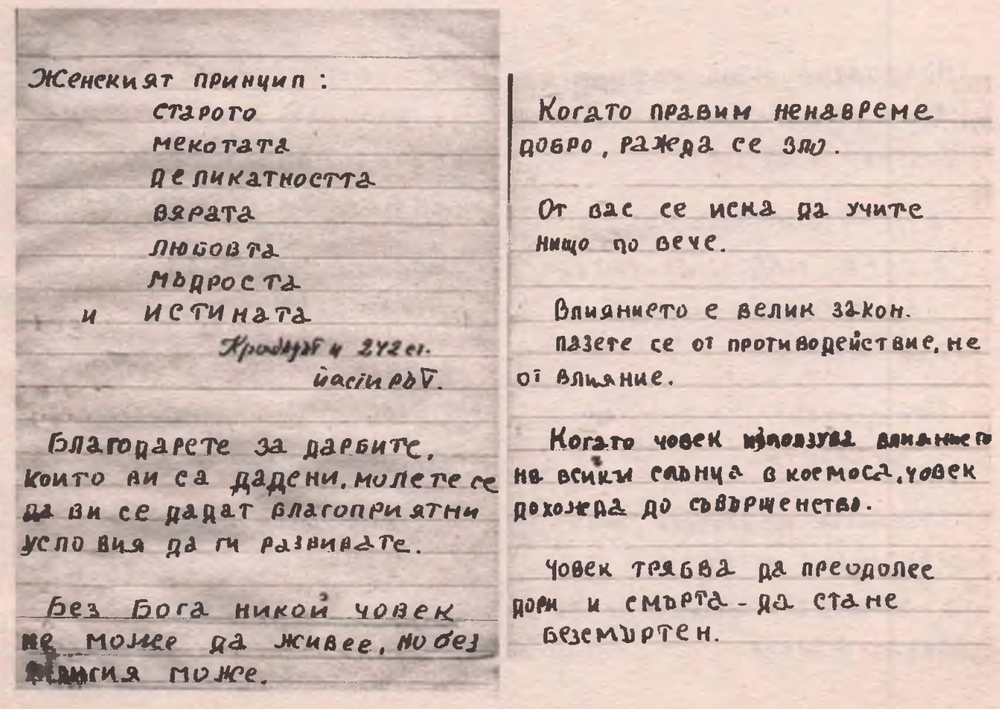 Женският принцип:
старото
мекотата
деликатността
вярата
любовта
мъдроста
и истината
242 ст.
Благодарете за дарбите,
които ви са дадени, молете се
да ви се дадат благоприятни
условия да ги развивате.
Без Бога никой човек
не може да живее, но без
може.
Когато правим ненавреме
добро, ражда се зло.
От вас се иска да учите
нищо по вече.
Влиянието е велик закон.
Пазете се от противодействие, не
от влияние.
Когато човек използува влиянието
на всики слънца в космоса, човек
дохожда до съвършенство.
Човек трябва да преодолее
дори и смърта - да стане
безсмъртен.